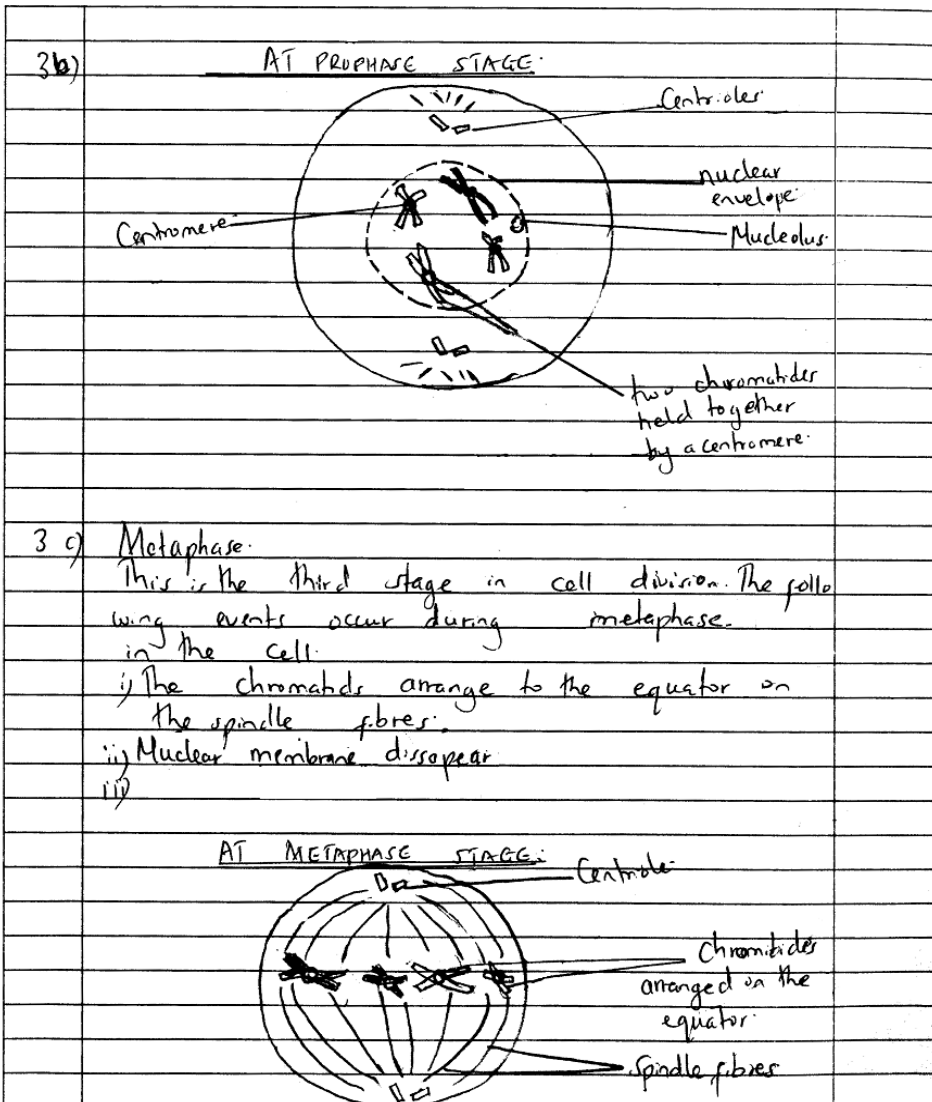 3b)
AT PROPHASE STAGE.
Centrioles
nuclear
envelope.
Centromere
Nucleolus.
two chromatides
held together
by a centromere.
3 c)
Metaphase.
This is the third stage in cell division. The follo
wing events occur during metaphase.
in the cell.
i) The chromatids arrange to the equator on
the spindle fibres.
ii) Nuclear membrane dissapear
iii)
AT METAPHASE STAGE:
Centriole
Chromitides
arranged on the
equator.
Spindle fibres